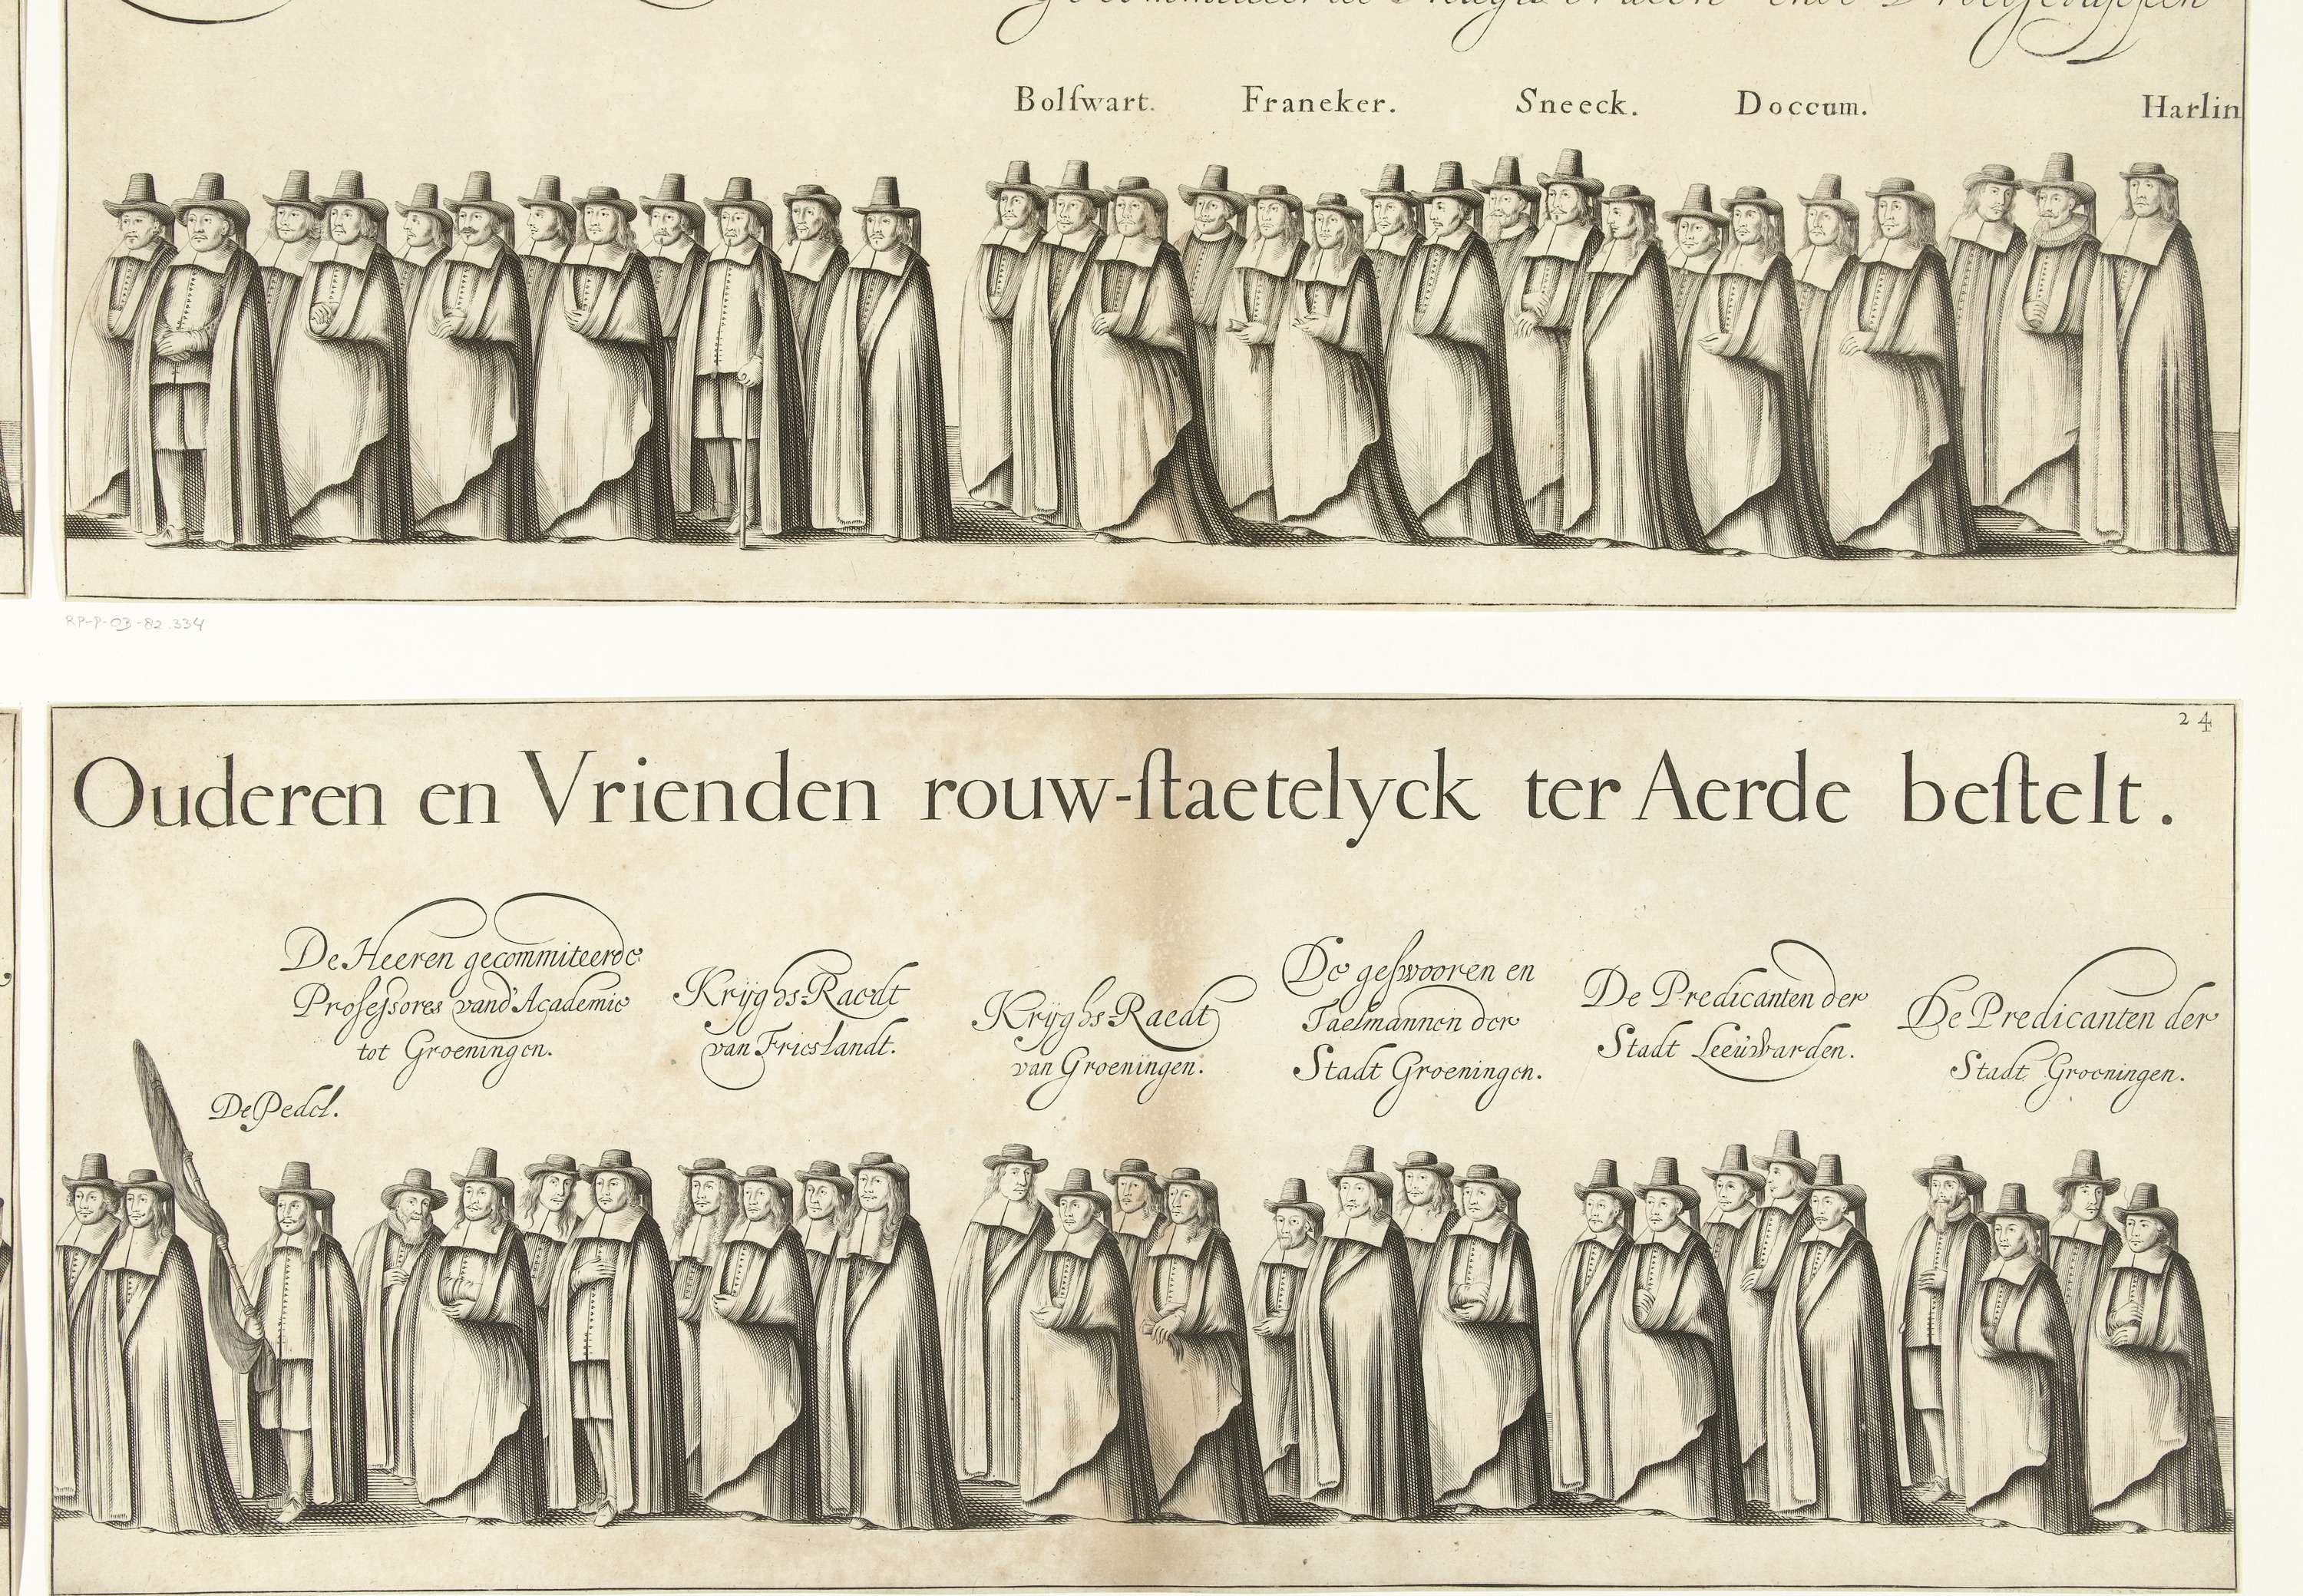 ende
Bolſwart. Franeker. Sneeck. Doccum. Harlin
RP-P-OB-82.334
24
Ouderen en Vrienden rouw-ſtaetelyck ter Aerde beſtelt.
De Heeren gecommiteerde
Profeſsores vand' Academie
tot Groeningen.
De Pedel.
Krijghs-Raedt
van Frieslandt.
Krijghs-Raedt
van Groeningen.
De geſwooren en
Taelmannen der
Stadt Groeningen.
De Predicanten der
Stadt Leeuwarden.
De Predicanten der
Stadt Groeningen.